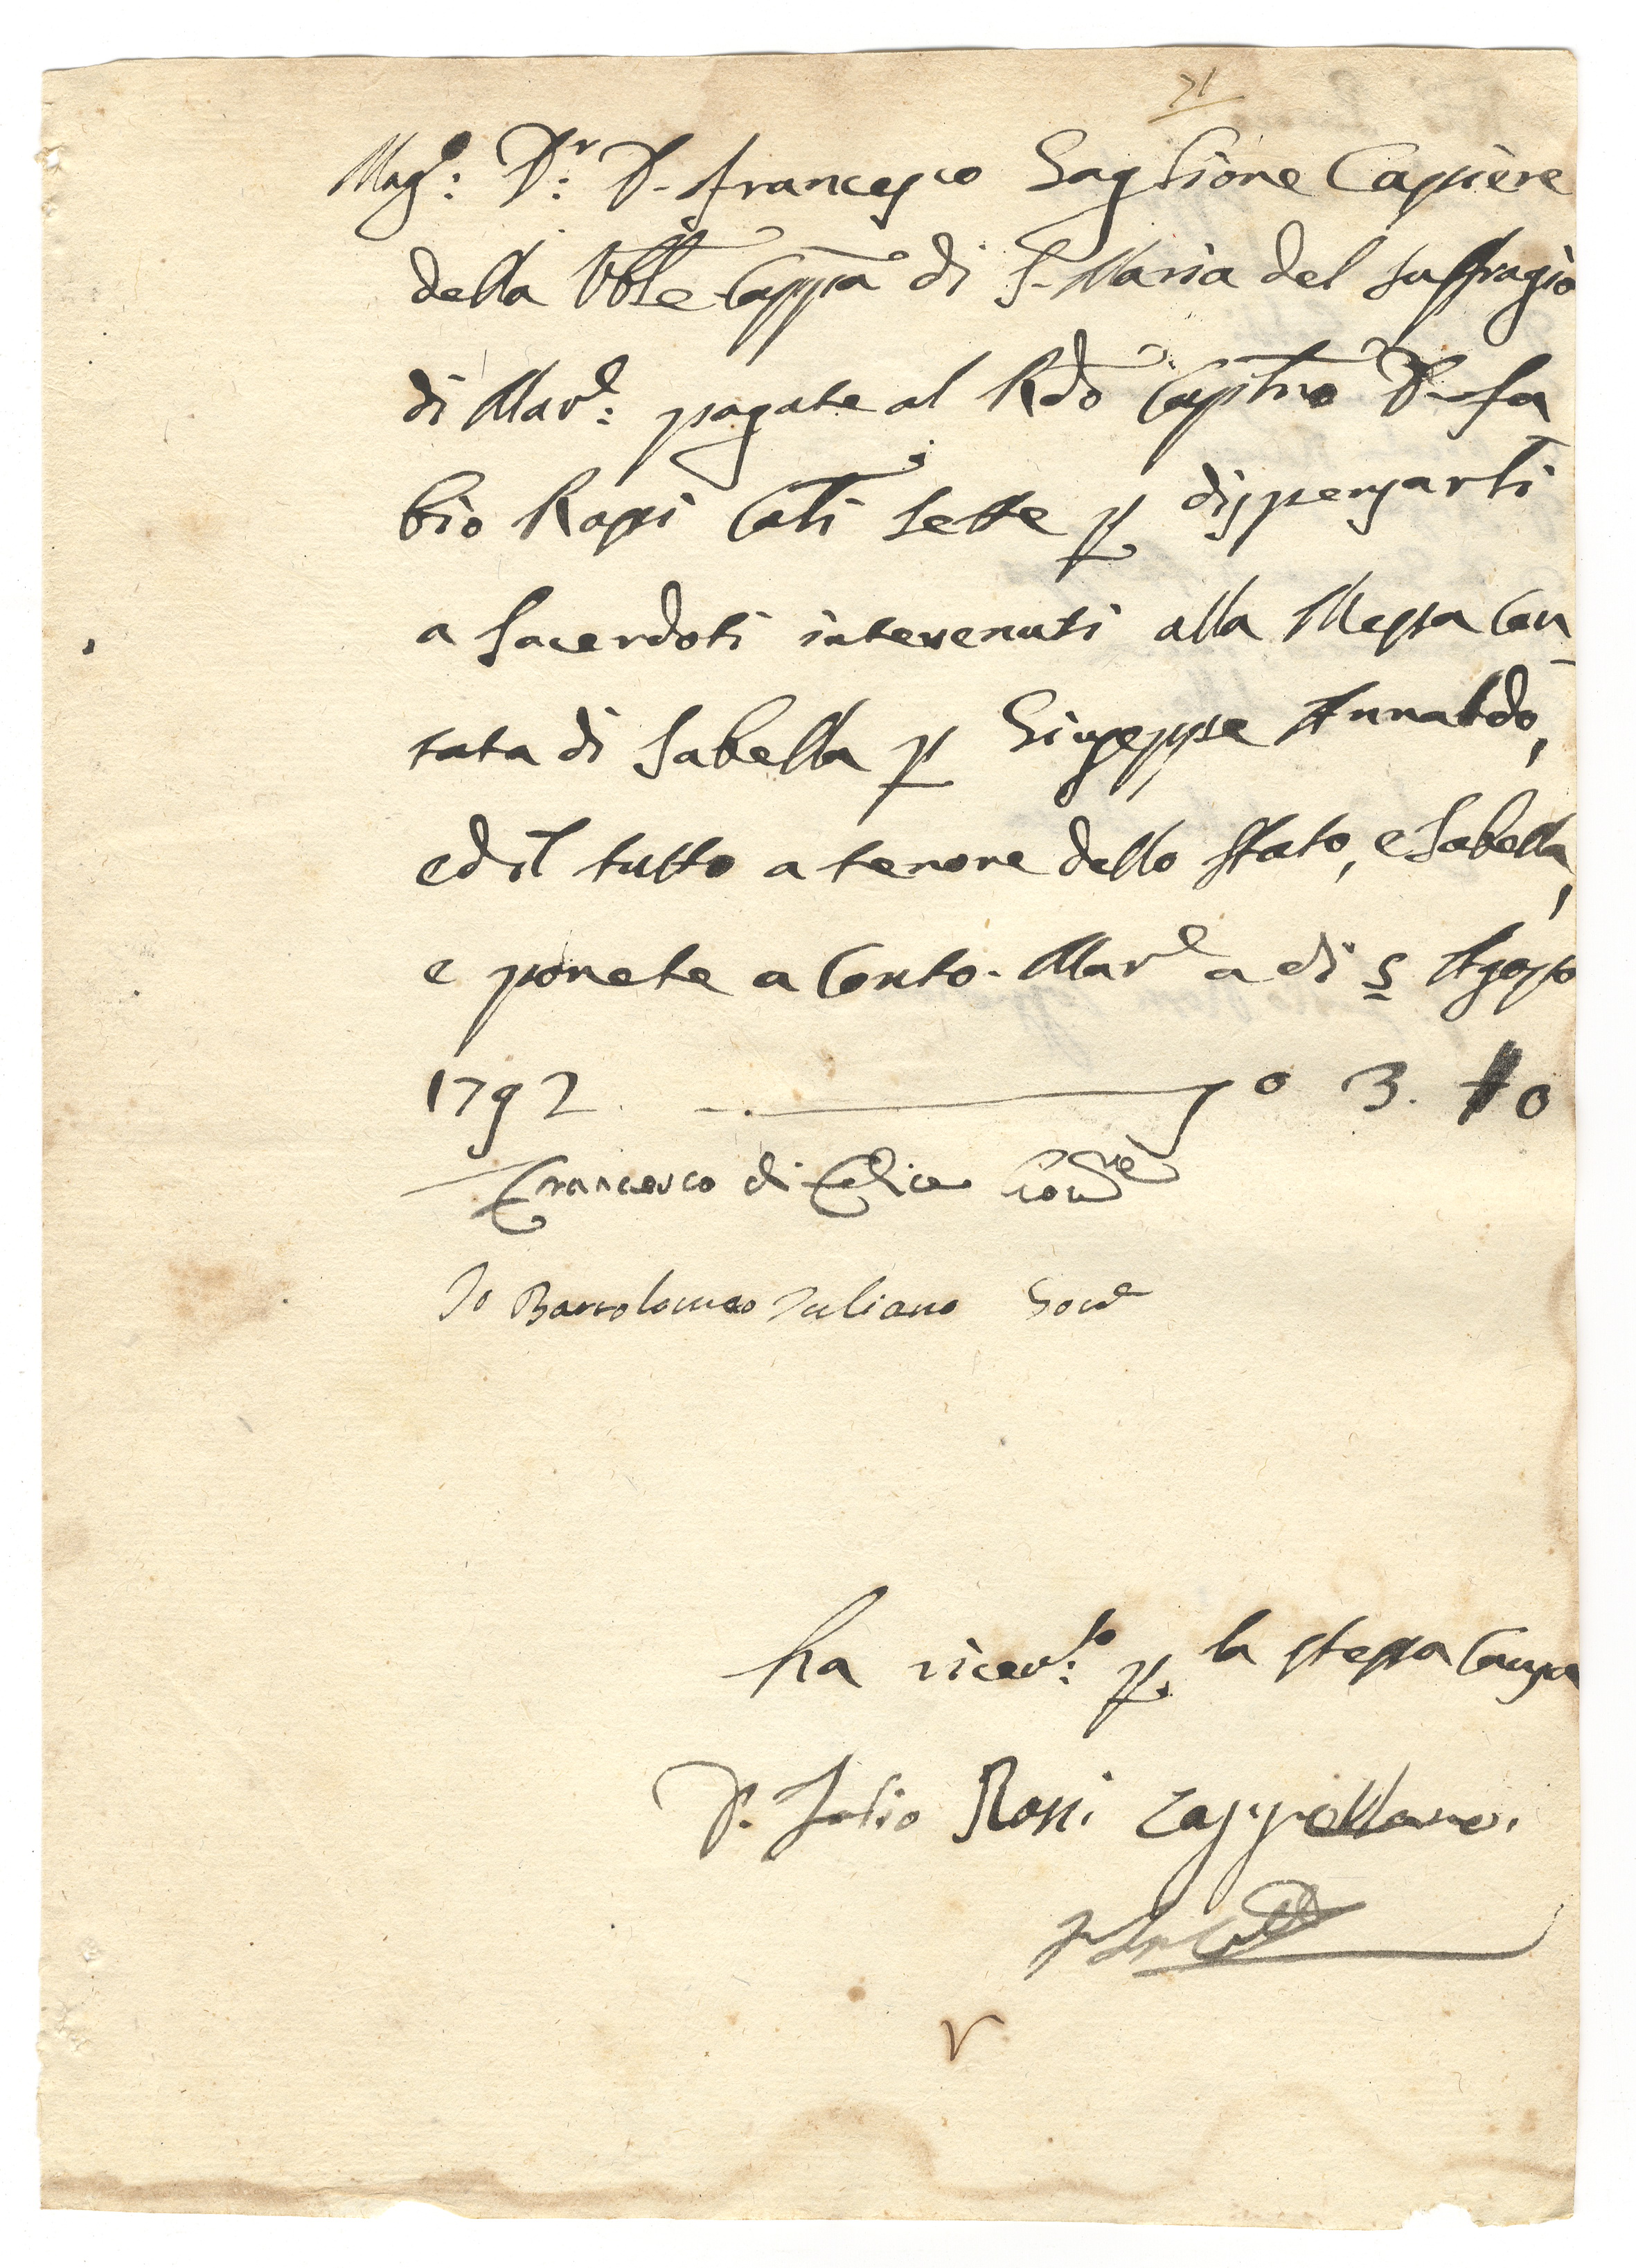 71
Mag.co: D.r: D. Francesco Gaglione Cassiere
della Vble Cappa di S. Maria del suffragio
di Mar.e: pagate al Rdo Capllno D. Fa
bio Rossi C.ti sette p dispensarli
a Sacerdoti intervenuti alla Messa Can
tata di Sabella p Giuseppe Annaldo,
ed il tutto a tenore dello Stato, e Sabella,
e ponete a Conto. Mar.e a di 5 Agosto
1792. 0 3. 10
Francesco di Felice Gov.re
Io Bartolomeo Juliano Gov.e
ha ricev.to: p. la stessa Causa
D. Fabio Rossi Cappellano.